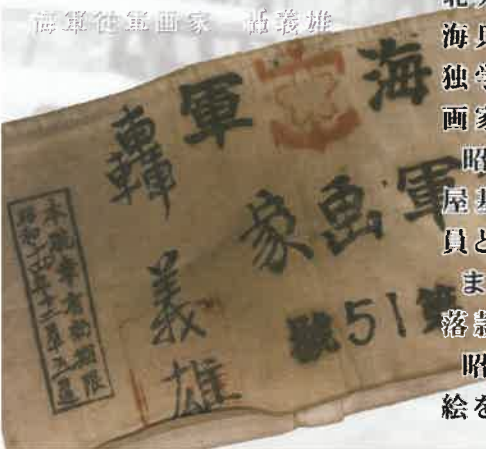 海軍従軍画家 轟義雄
海軍
軍畫家
第51號
轟義雄
本腕章有効期限
昭和十四年十二月
海兵
独学
画家
昭
屋基
員と
ま
落款
昭
絵を